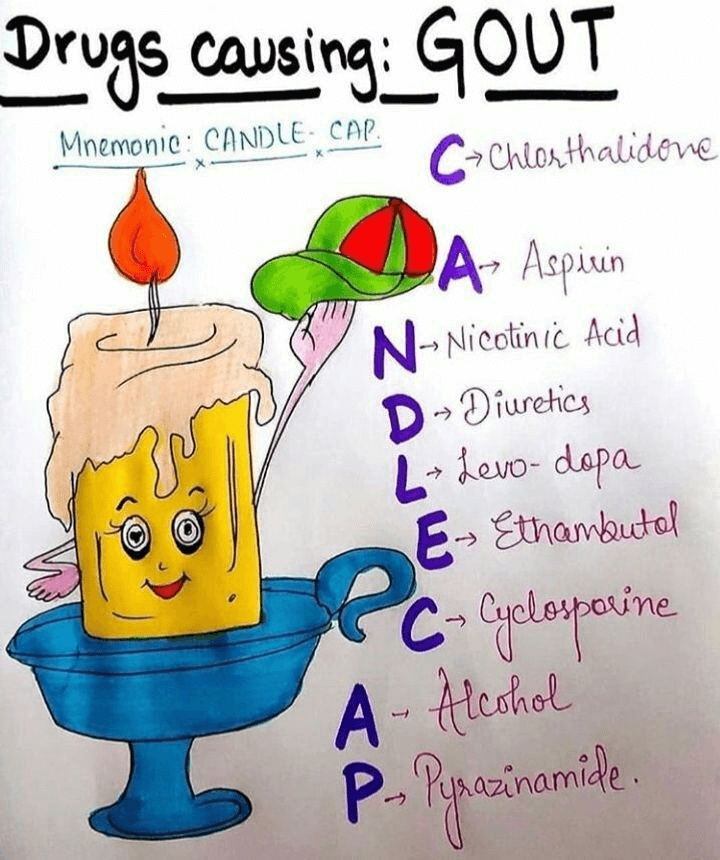 Drugs causing: GOUT
Mnemonic: CANDLE- CAP.
C→ Chlorthalidone
A→ Aspirin
N→ Nicotinic Acid
D→ Diuretics
L→ Levo-dopa
E→ Ethambutol
C→ Cyclosporine
A- Alcohol
P→ Pyrazinamide.